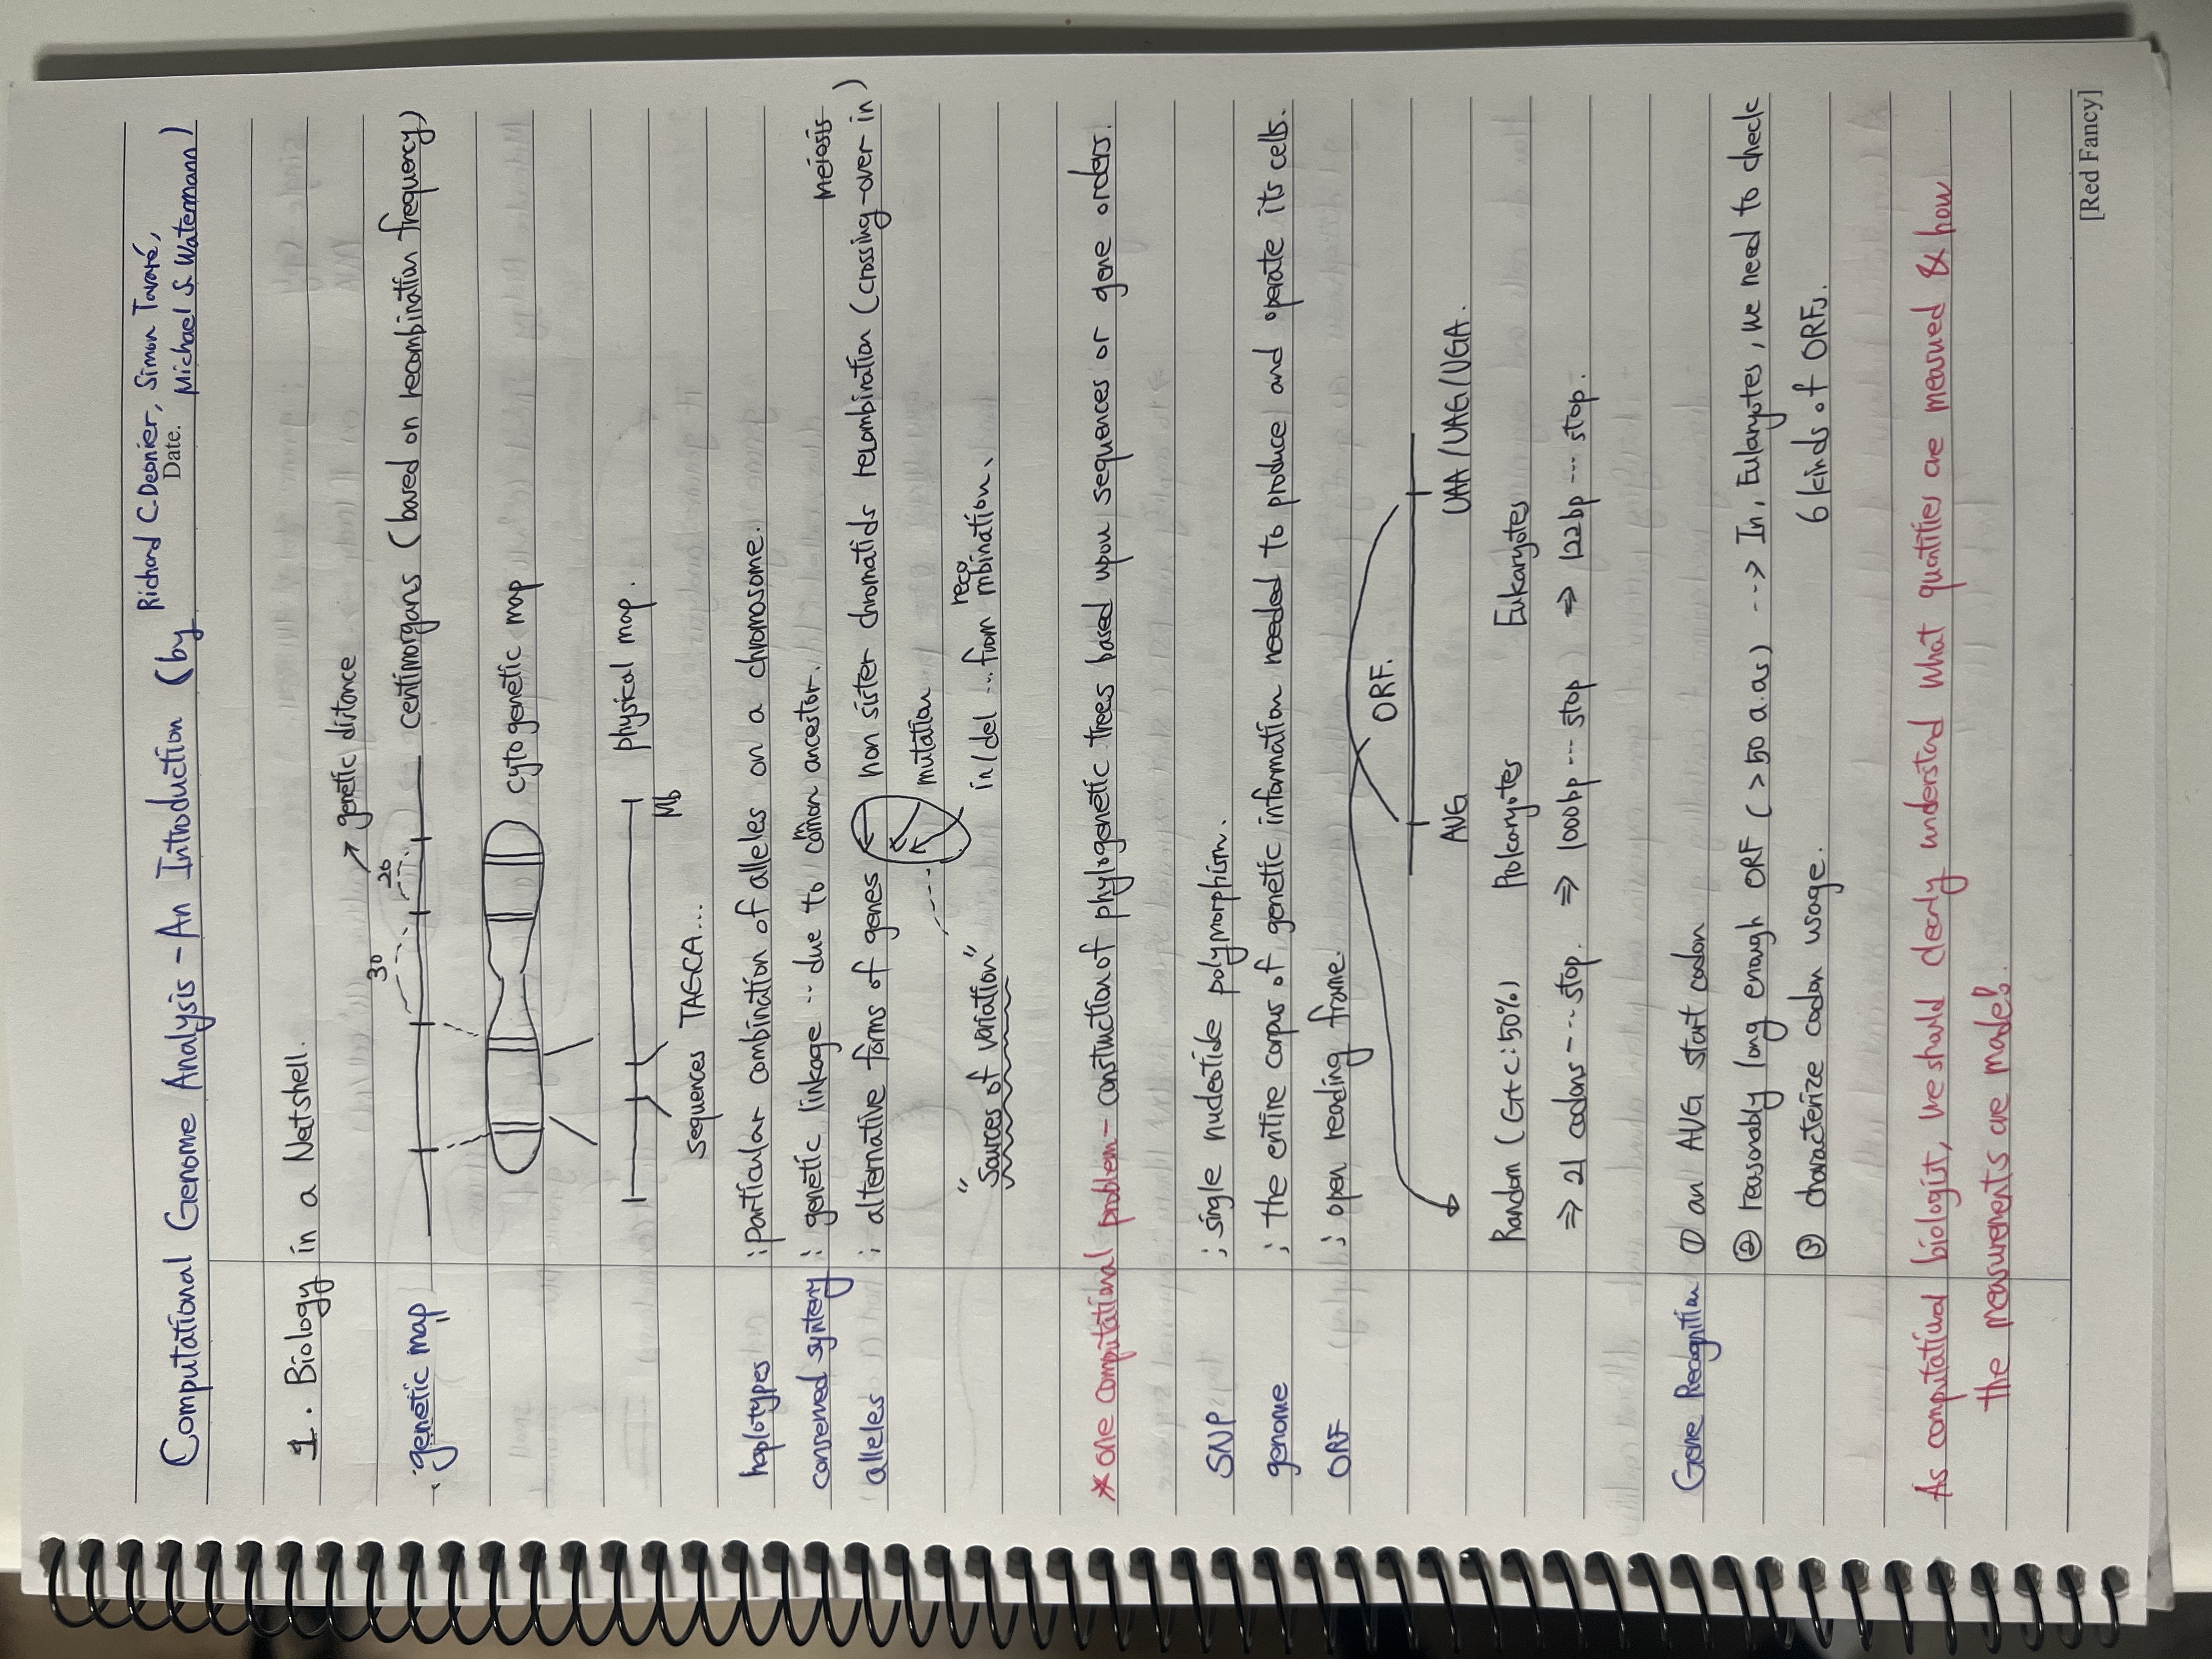 Computational Genome Analysis - An Introduction (by Richard C. Deonier, Simon Tavaré,
Date. Michael S. Watermann)
1. Biology in a Natshell.
genetic distance
30 20
genetic map centimorgans (based on recombination frequency)
cytogenetic map
physical map.
Mb
sequences TAGCA...
haplotypes : particular combination of alleles on a chromosome.
conserved synteny : genetic linkage ... due to common ancestor. meiosis
alleles : alternative forms of genes non sister chromatids recombination (crossing-over in)
mutation
"Sources of variation" in/del ... from recombination.
* one computational problem - construction of phylogenetic trees based upon sequences or gene orders.
SNP ; single nucleotide polymorphism.
genome ; the entire corpus of genetic information needed to produce and operate its cells.
ORF ; open reading frame.
ORF.
AUG UAA/UAG/UGA.
Random (G+C:50%) Prokaryotes Eukaryotes
⇒ 21 codons ---- stop. ⇒ 1000bp --- stop ) ⇒ 122bp --- stop.
Gene Recognition ① an AUG start codon
② reasonably long enough ORF (>50 a.as) --> In, Eukaryotes, we need to check
③ characterize codon usage. 6 kinds of ORFs.
As computatiual biologist, we should clearly understand what quantities are measured & how
the measurements are made!
[Red Fancy]